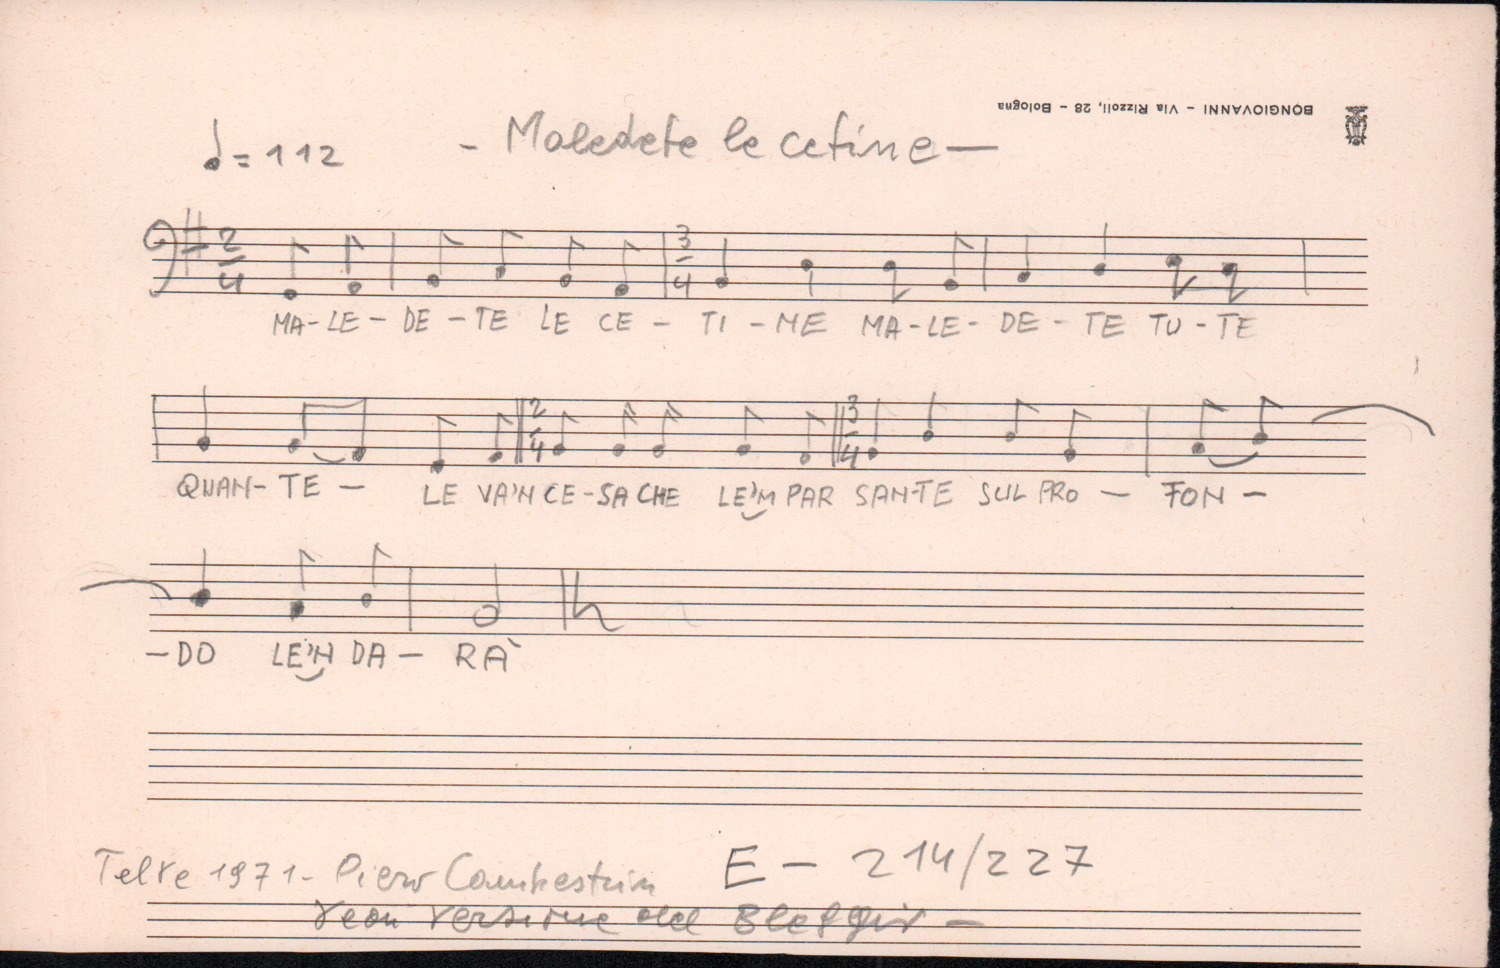 BONGIOVANNI - Via Rizzoli, 28 - Bologna
♩= 112 - Maledete le cetine —
2/4 3/4
MA-LE-DE-TE LE CE-TI-NE MA-LE-DE-TE TU-TE
2/4 3/4
QUAN-TE- LE VA'N CE-SA CHE LE'M PAR SAN-TE SUL PRO-FON-
-DO LE'N DA-RÀ
Telve 1971- Piero E - 214/227
versione del